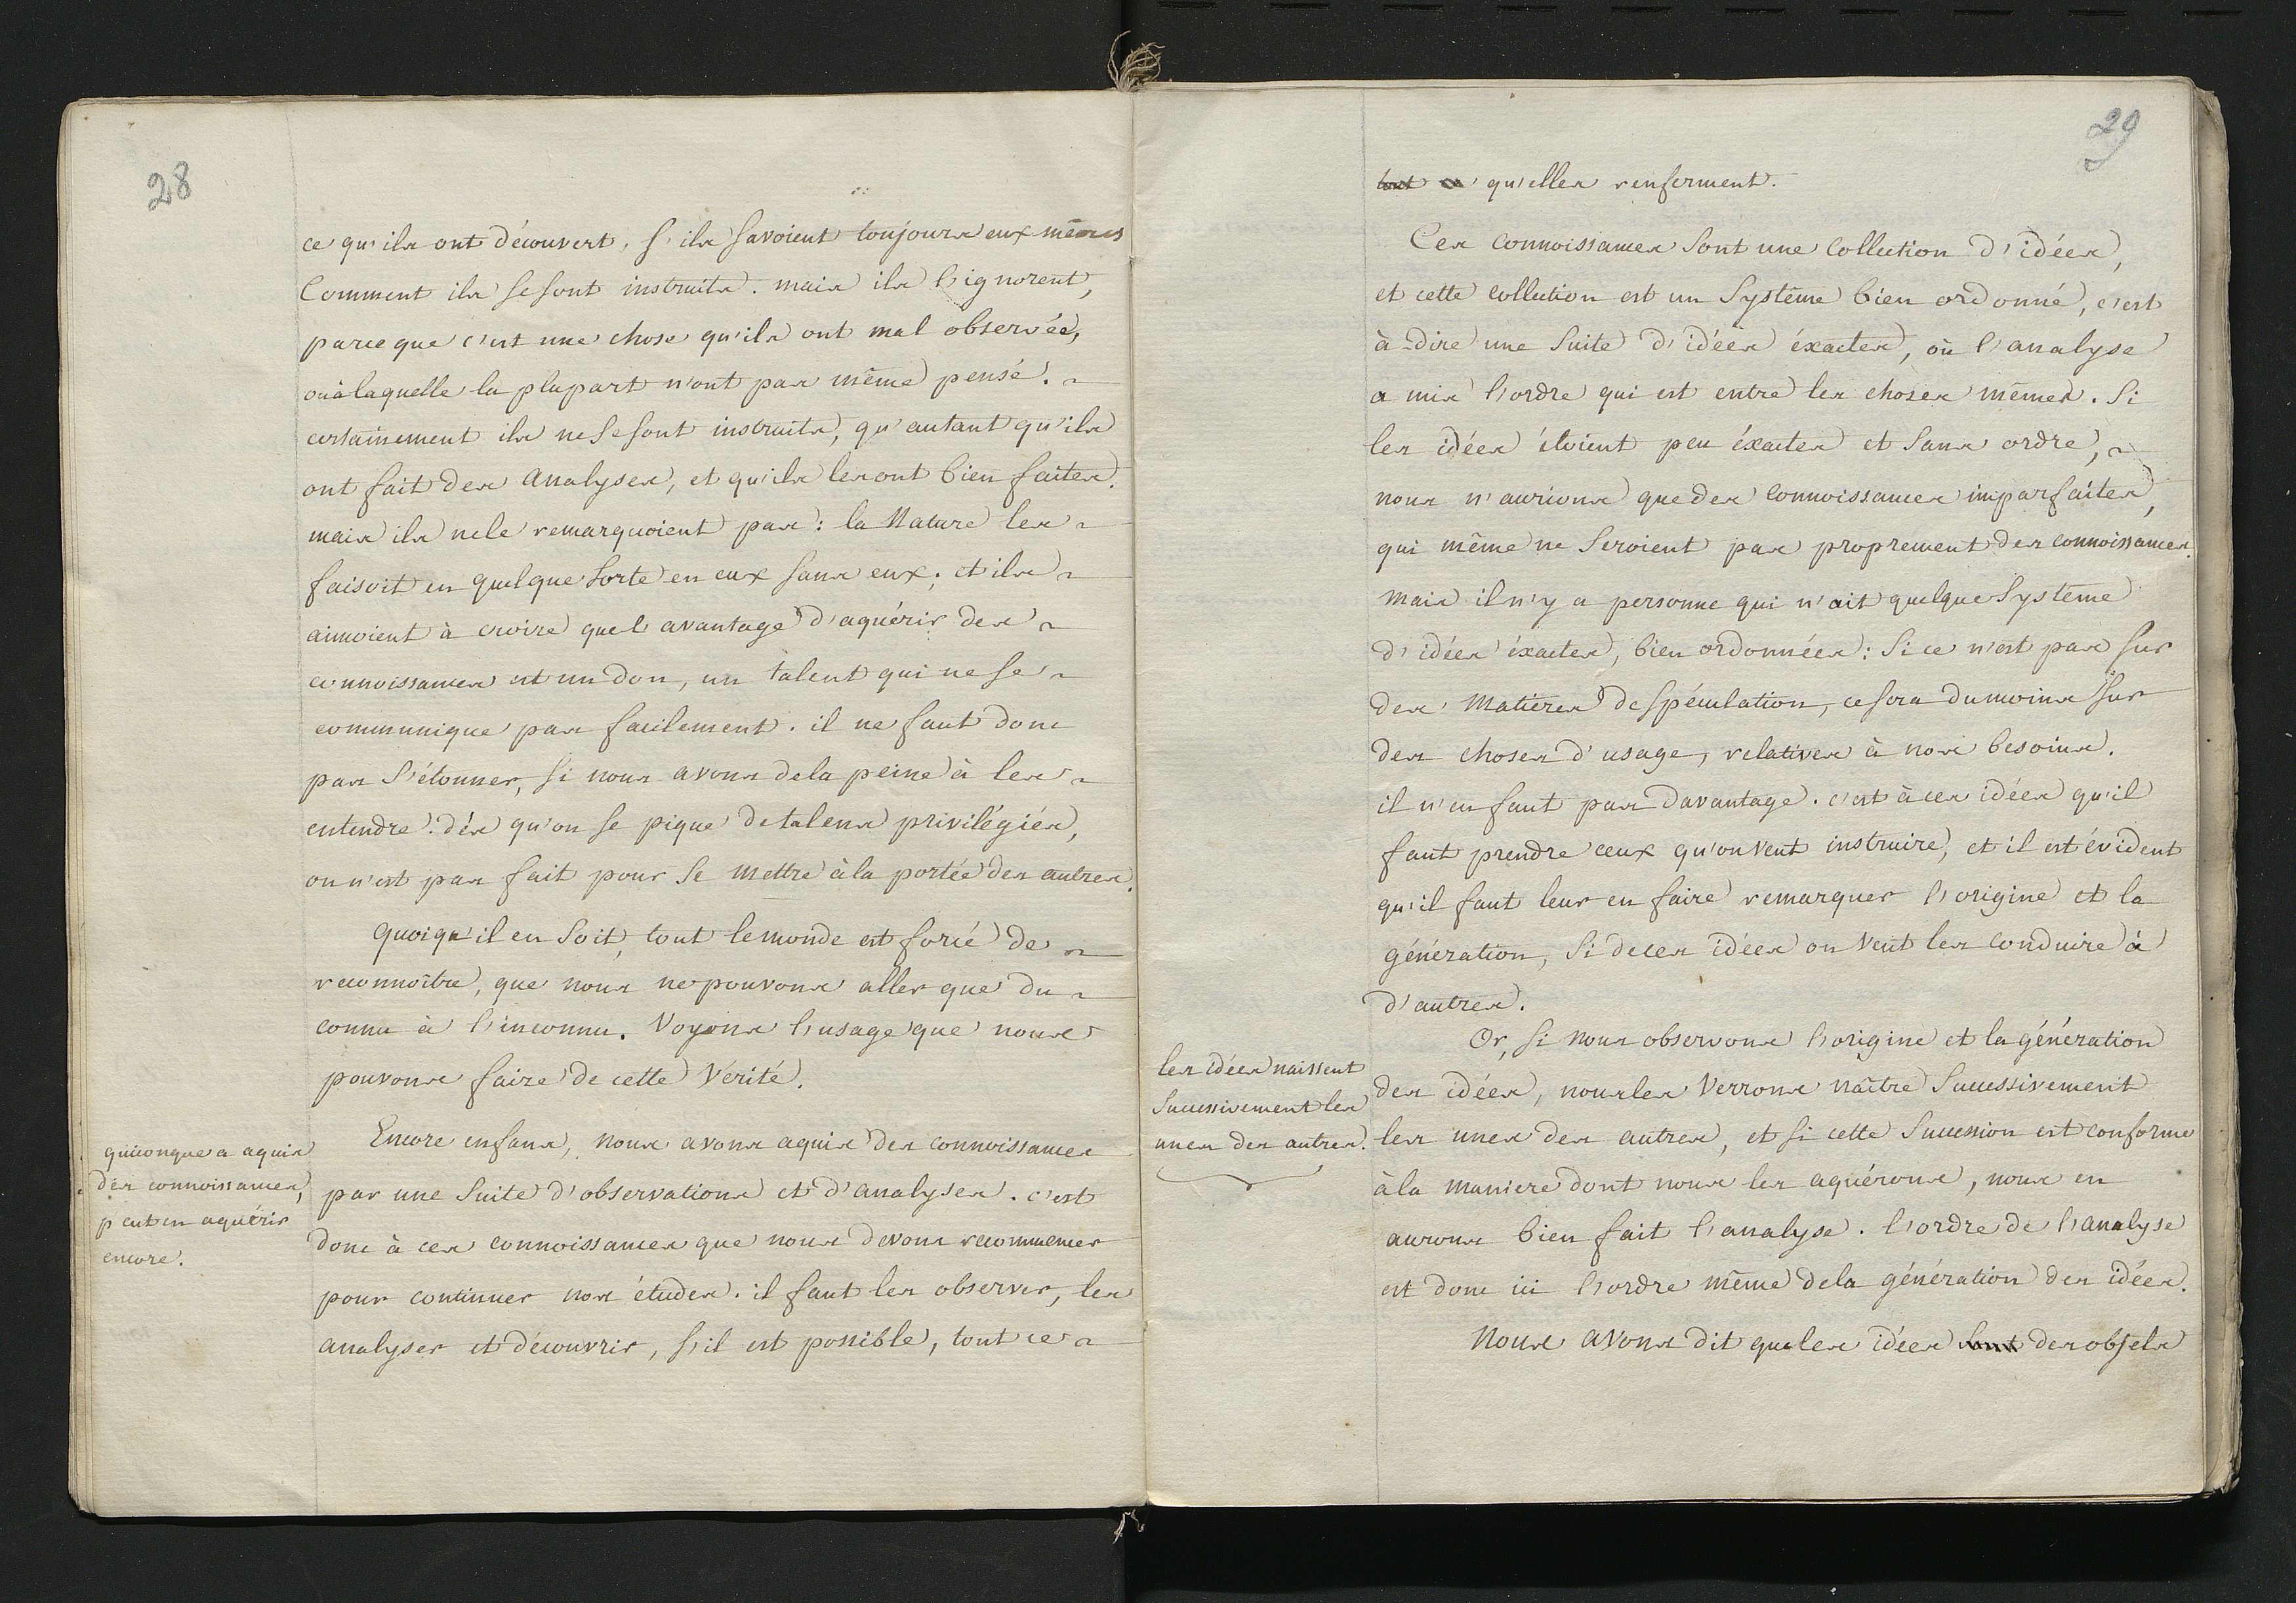 28
ce qu'ils ont découvert, s'ils savoient toujours eux mêmes
Comment ils se sont instruits. mais ils l'ignorent,
parceque c'est une chose qu'ils ont mal observée,
ou à laquelle la plupart n'ont pas même pensé.
certainement ils ne se sont instruits, qu'autant qu'ils
ont fait des analyses, et qu'ils les ont bien faites.
mais ils ne le remarquoient pas: la Nature les
faisoit en quelque sorte en eux sans eux; et ils
aimoient à croire que l'avantage d'aquérir des
connoissances est un don, un talent qui ne se
communique pas facilement. il ne faut donc
pas s'étonner, si nous avons de la peine à les
entendre. dès qu'on se pique de talens privilégiés,
on n'est pas fait pour se mettre à la portée des autres.
quoiqu'il en soit, tout le monde est forcé de
reconnoître, que nous ne pouvons aller que du
connu à l'inconnu. Voyons l'usage que nous
pouvons faire de cette Vérité.
quiconque a aquis
des connoissances,
peut en aquérir
encore.
Encore enfans, nous avons aquis des connoissances
par une suite d'observations et d'analyses. c'est
donc à ces connoissances que nous devons recommencer
pour continuer nos études. il faut les observer, les
analyser et découvrir, s'il est possible, tout ce
29
tout ce qu'elles renferment.
Ces connoissances sont une collection d'idées,
et cette collection est un Système bien ordonné, c'est
à-dire une suite d'idées éxactes, où l'analyse
a mis l'ordre qui est entre les choses mêmes. Si
les idées étoient peu éxactes et sans ordre,
nous n'aurions que des connoissances imparfaites,
qui même ne seroient pas proprement des connoissances.
Mais il n'y a personne qui n'ait quelque Systême
d'idées éxactes, bien ordonnées: Si ce n'est pas sur
des Matières de spéculation, ce sera du moins sur
des choses d'usage, relatives à nos besoins.
il n'en faut pas davantage. c'est à ces idées qu'il
faut prendre ceux qu'on veut instruire, et il est évident
qu'il faut leur en faire remarquer l'origine et la
génération, si de ces idées on veut les conduire à
d'autres.
les idées naissent
successivement les
unes des autres.
Or, si nous observons l'origine et la génération
des idées, nous les Verrons naître successivement
les unes des autres, et si cette succession est conforme
à la maniere dont nous les aquérons, nous en
aurons bien fait l'analyse. l'ordre de l'analyse
est donc ici l'ordre même de la génération des idées.
Nous avons dit que les idées sont des objets